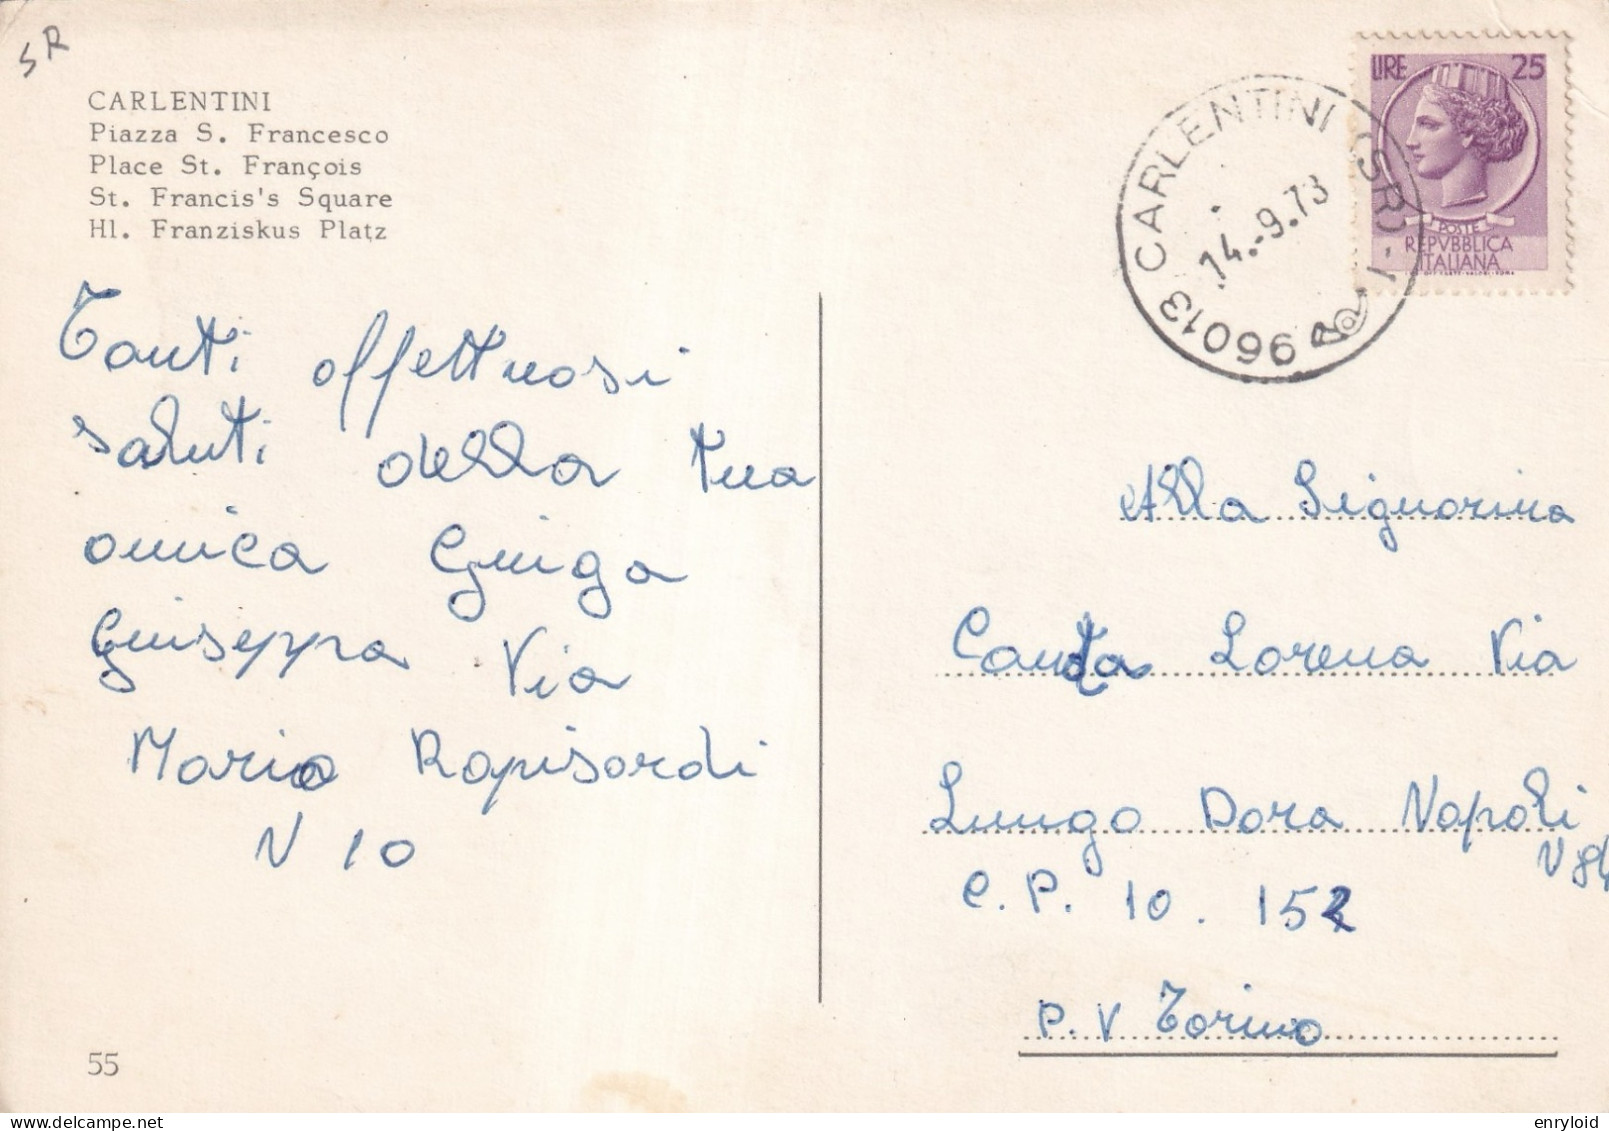 SR
CARLENTINI
Piazza S. Francesco
Place St. François
St. Francis's Square
Hl. Franziskus Platz
LIRE 25
POSTE
REPVBBLICA
ITALIANA
96013 CARLENTINI (SR)
14.-9.73
Tanti affettuosi
saluti della tua
amica Giuga
Giuseppa Via
Mario Rapisardi
N 10
Alla Signorina
Lorena Via
Lungo Dora Napoli
N 84
C.P. 10.152
P.V Torino
55
enryloid
delcampe.net